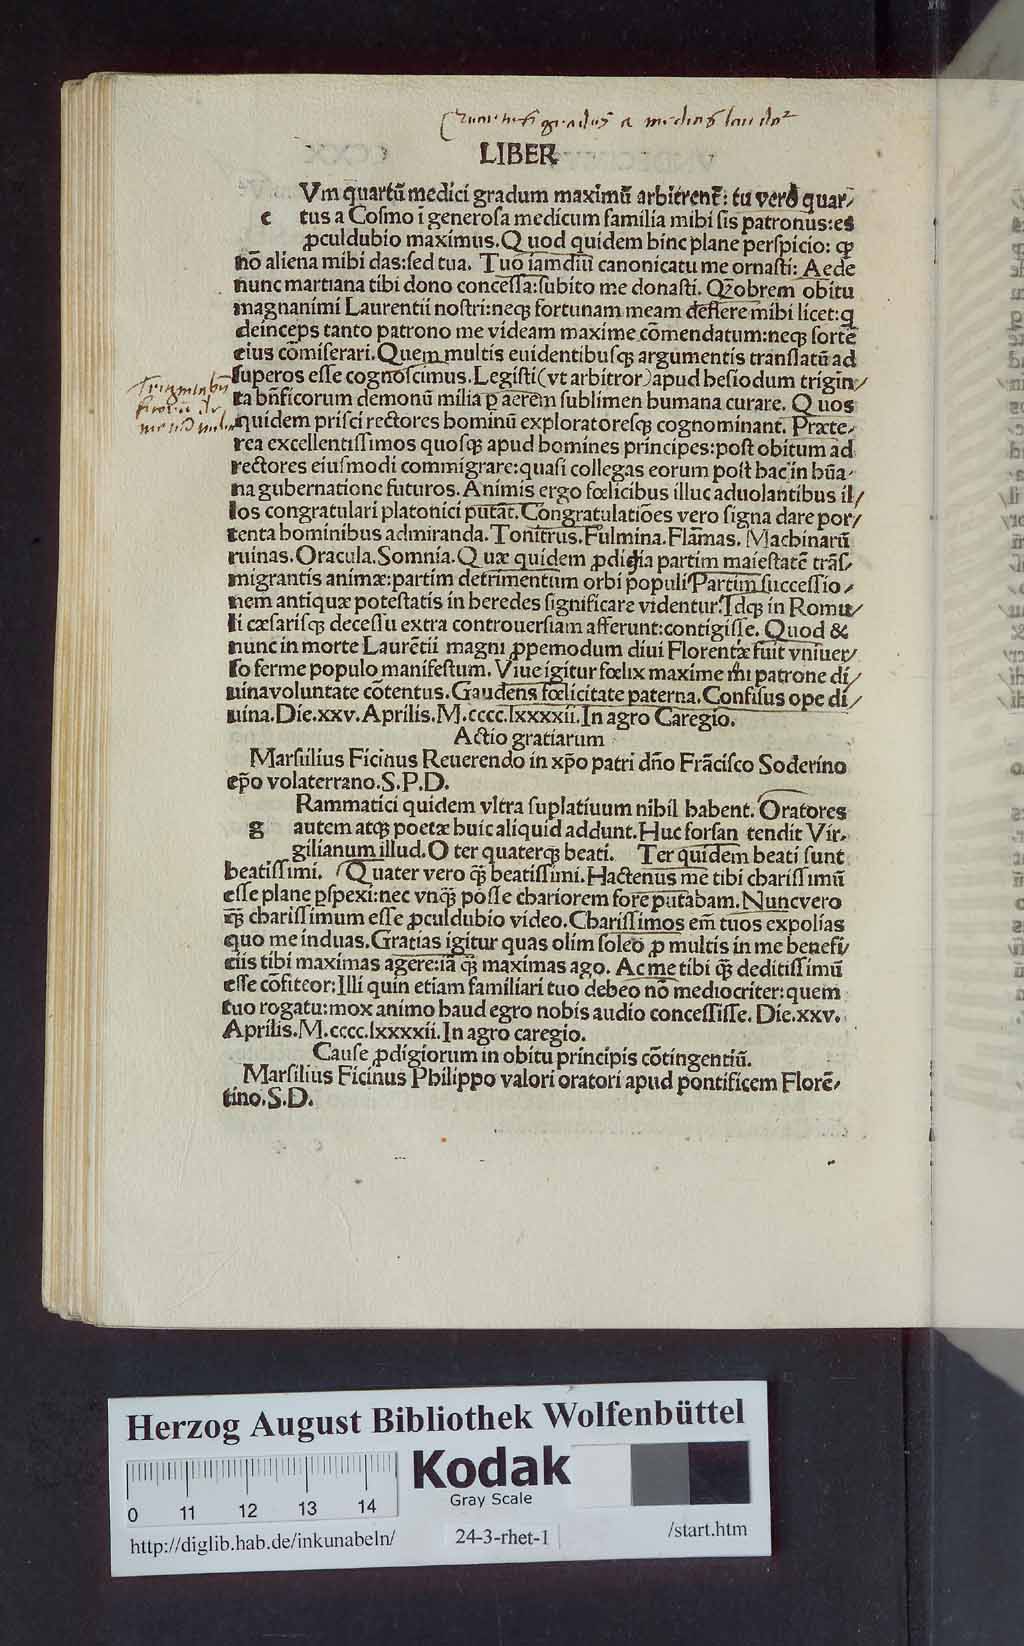 gradus a medicis
LIBER
Vm quartū medici gradum maximū arbitrent̄: tu vero quar/
c tus a Cosmo ī generosa medicum familia mihi sis patronus:es
ꝓculdubio maximus. Quod quidem hinc plane perspicio: ꝙ
nō aliena mihi das:sed tua. Tuo iamdiu canonicatu me ornasti: Aede
nunc martiana tibi dono concessa:subito me donasti. Qȝobrem obitu
magnanimi Laurentii nostri:neqȝ fortunam meam deflere mihi licet:q
deinceps tanto patrono me videam maxime cōmendatum:neqȝ sortē
eius cōmiserari. Quem multis euidentibusqȝ argumentis translatū ad
superos esse cognoscimus. Legisti (vt arbitror) apud hesiodum trigin/
ta bn̄ficorum demonū milia p aerem sublimen humana curare. Quos
quidem prisci rectores hominū exploratoresqȝ cognominant. Præte/
rea excellentissimos quosqȝ apud homines principes:post obitum ad
rectores eiusmodi commigrare:quasi collegas eorum post hac in hūa/
na gubernatione futuros. Animis ergo fœlicibus illuc aduolantibus il/
los congratulari platonici putāt. Congratulatiōes vero signa dare por/
tenta hominibus admiranda. Tonitrus. Fulmina. Flāmas. Machinarū
ruinas. Oracula. Somnia. Quæ quidem ꝓdigia partim maiestatē trās/
migrantis animæ:partim detrimentum orbi populi Partim successio/
nem antiquæ potestatis in heredes significare videntur. Idqȝ in Romu/
li cæsarisqȝ decessu extra controuersiam afferunt:contigisse. Quod &
nunc in morte Laurētii magni ꝓpemodum diui Florentæ fuit vniuer/
so ferme populo manifestum. Viue igitur fœlix maxime mi patrone di/
uinavoluntate cōtentus. Gaudens fœlicitate paterna. Confisus ope di/
uina. Die.xxv. Aprilis. M.cccc.lxxxxii. In agro Caregio.
Actio gratiarum
Marsulius Ficinus Reuerendo in xp̄o patri dn̄o Frācisco Soderino
ep̄o volaterrano. S.P.D.
Rammatici quidem vltra suplatiuum nihil habent. Oratores
g autem atqȝ poetæ huic aliquid addunt. Huc forsan tendit Vir/
gilianum illud. O ter quaterqȝ beati. Ter quidem beati sunt
beatissimi. Quater vero qȝ̄ beatissimi. Hactenus me tibi charissimū
esse plane pspexi:nec vnqȝ̄ posse chariorem fore putabam. Nuncvero
qȝ̄ charissimum esse ꝓculdubio video. Charissimos em̄ tuos expolias
quo me induas. Gratias igitur quas olim soleo ꝓ multis in me benefi/
ciis tibi maximas agere:iā qȝ̄ maximas ago. Ac me tibi qȝ̄ deditissimū
esse cōfiteor: Illi quin etiam familiari tuo debeo nō mediocriter:quem
tuo rogatu:mox animo haud egro nobis audio concessisse. Die.xxv.
Aprilis. M.cccc.lxxxxii. In agro caregio.
Cause ꝓdigiorum in obitu principis cōtingentiū.
Marsilius Ficinus Philippo valori oratori apud pontificem Florē/
tino. S.D.
Herzog August Bibliothek Wolfenbüttel
Kodak
Gray Scale
0 11 12 13 14
http://diglib.hab.de/inkunabeln/
24-3-rhet-1
/start.htm